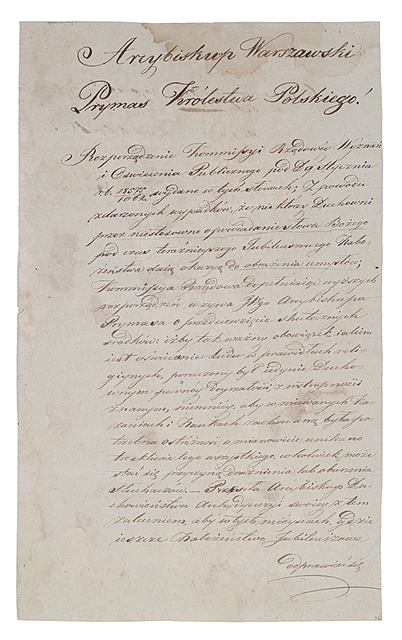 Arcybiskup Warszawski
Prymas Królestwa Polskiego!
Rozporządzenie Kommissyi Rządowéy Wyznań
i Oświecenia Publicznego pod D. 9 Stycznia
r. b. wydane w tych słowach; Z powodu
zdarzonych wypadków, że niektórzy Duchowni
przez niestosowne opowiadanie słowa Bożego
pod czas teraźnieyszego Jubileuszowego Nabo-
żeństwa daią okazyą do obrażenia umysłów;
Kommissya Rządowa dopełniaiąc wyższych
rozporządzeń wzywa JWgo Arcybiskupa
Prymasa o przedsięwzięcie skutecznych
środków: iżby tak ważny obowiązek iakim
iest oświecanie Ludu w prawidłach reli-
giynych, poruczony był iedynie Ducho-
wnym pewnéy Moralności z roztropności
znanym, niemniey, aby w miewanych Ka-
zaniach i Naukach zachowaną była po-
trzebna ostrożność, a mianowicie unikano
troskliwie tego wszystkiego, co kolwiek może
stać się przyczyną drażnienia lub oburzenia
Słuchaczów — Przesyła Arcybiskup Du-
chowieństwu Archydyecezyi swoiéy z tem
zaleceniem, aby w tych mieyscach, gdzie
ieszcze Nabożeństwo Jubileuszowe
odprawia się